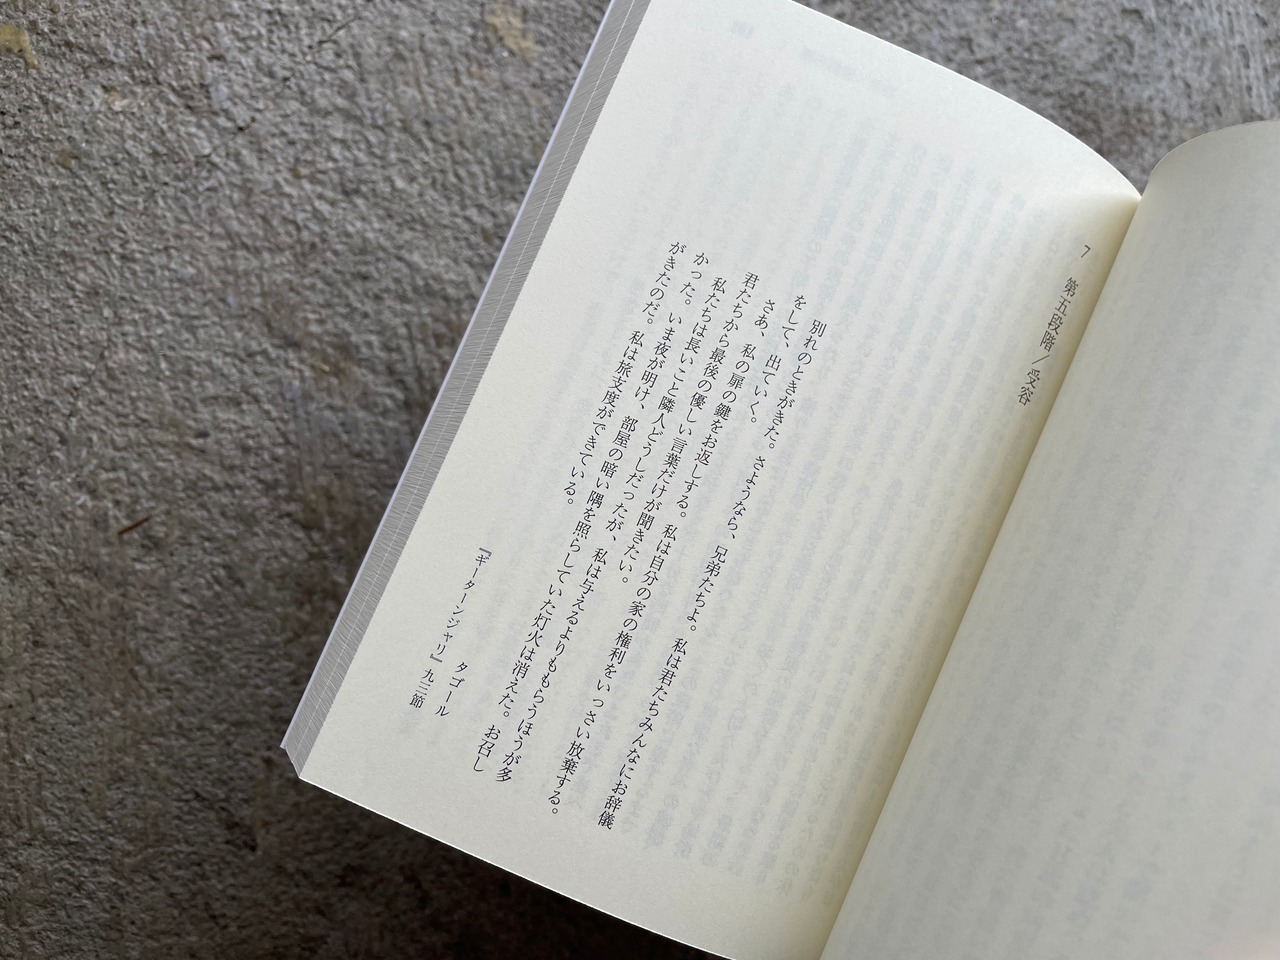 7 第五段階／受容
別れのときがきた。さようなら、兄弟たちよ。私は君たちみんなにお辞儀
をして、出ていく。
さあ、私の扉の鍵をお返しする。私は自分の家の権利をいっさい放棄する。
君たちから最後の優しい言葉だけが聞きたい。
私たちは長いこと隣人どうしだったが、私は与えるよりももらうほうが多
かった。いま夜が明け、部屋の暗い隅を照らしていた灯火は消えた。お召し
がきたのだ。私は旅支度ができている。
タゴール
『ギーターンジャリ』九三節